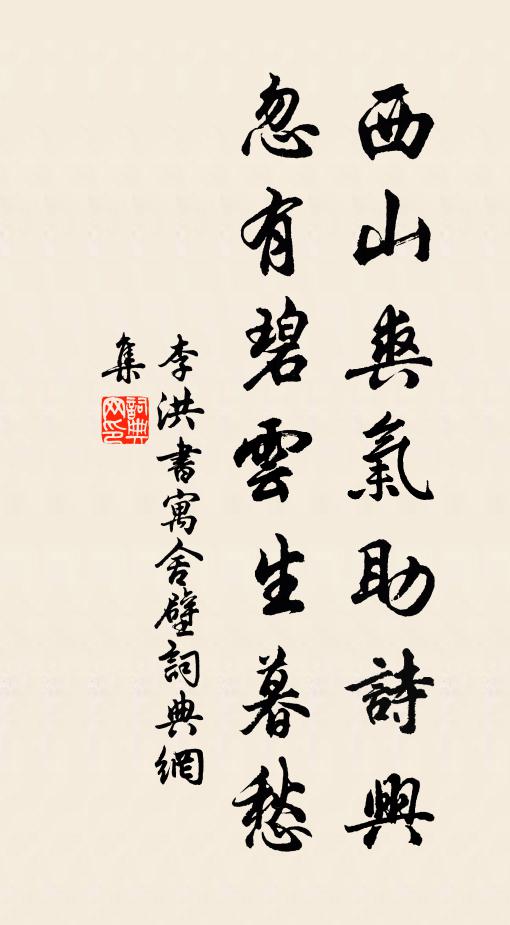 西山爽氣助詩興
忽有碧雲生暮愁
李洪書寓舍壁詞典網
集
詞典
网印